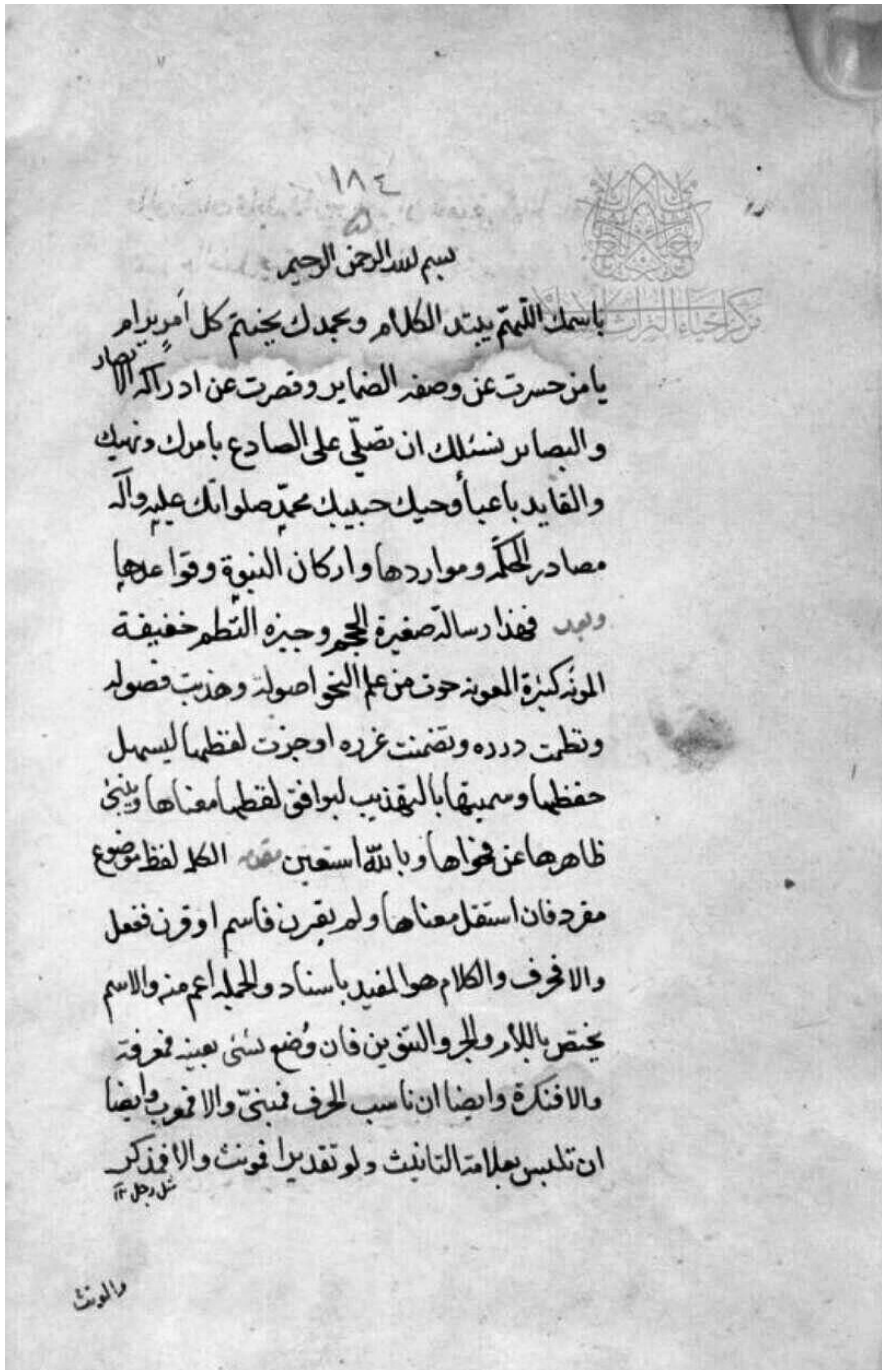 ١٨٤
٥
بسم الله الرحمن الرحيم
باسمك اللهم يبتدء الكلام وبحمدك يختتم كل امرٍ يرام
يا من حسرت عن وصفه الضماير وقصرت عن ادراكه الابصار
والبصائر نسئلك ان تصلّي على الصادع بامرك ونهيك
والقايد باعبأ وحيك حبيبك محمدٍ صلواتك عليه وآله
مصادر الحكمة ومواردها واركان النبوة وقواعدها
وبعد فهذا رسالة صغيرة الحجم وجيزه النظم خفيفة
المونه كثيرة المعونه حوت من علم النحو اصوله وهذبت فصوله
ونظمت درره وتضمنت غرره اوجزت لفظها ليسهل
حفظها وسميتها بالتهذيب ليوافق لفظها معناها وينبئ
ظاهرها عن فحواها وبالله استعين مقدمه الكلمه لفظ موضوع
مفرد فان استقل معناها ولم يقرن فاسم او قرن ففعل
والا فحرف والكلام هو المفيد باسناد والجمله اعم منه والاسم
يختص باللام والجر والتنوين فان وُضع لشئ بعينه فمعرفة
والا فنكرة وايضا ان ناسب الحرف فمبنىّ والا فمعرب وايضا
ان تلبس بعلامة التانيث ولو تقديرا فمونث والا فمذكر
مثل رجل ١٢
والمونث
مركز احياء التراث